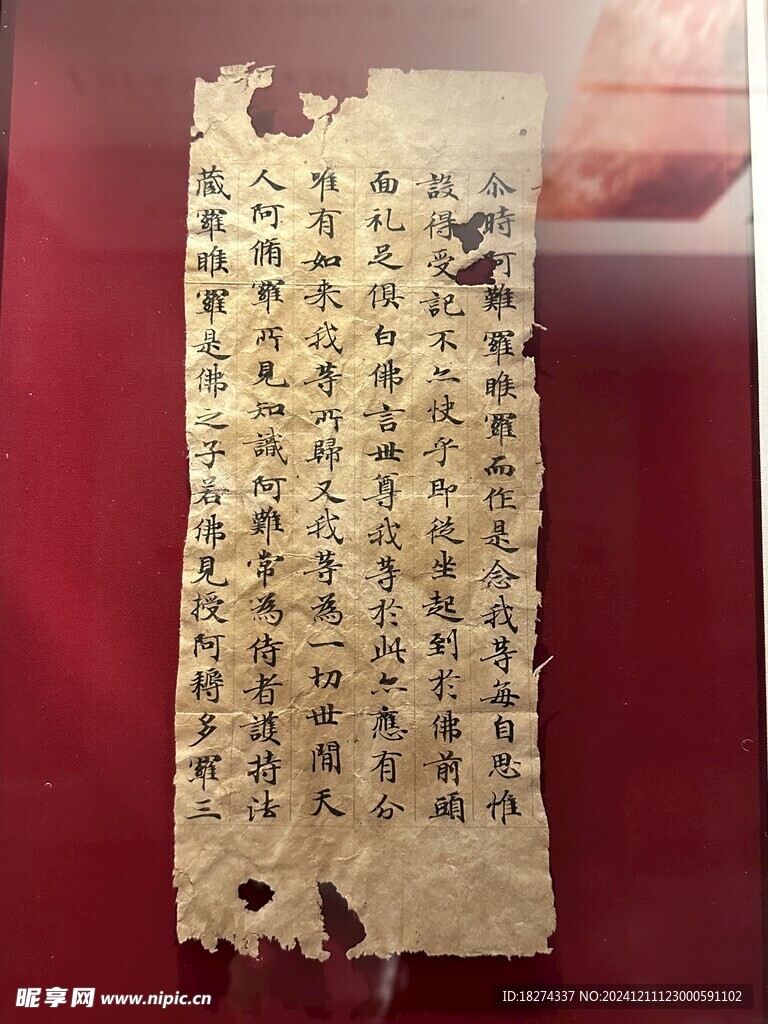 尒時阿難羅睺羅而作是念我等每自思惟
設得受記不亦快乎即從坐起到於佛前頭
面礼足俱白佛言世尊我等於此亦應有分
唯有如来我等所歸又我等為一切世閒天
人阿脩羅所見知識阿難常為侍者護持法
蔵羅睺羅是佛之子若佛見授阿耨多羅三
昵享网 www.nipic.cn
ID:18274337 NO:20241211123000591102